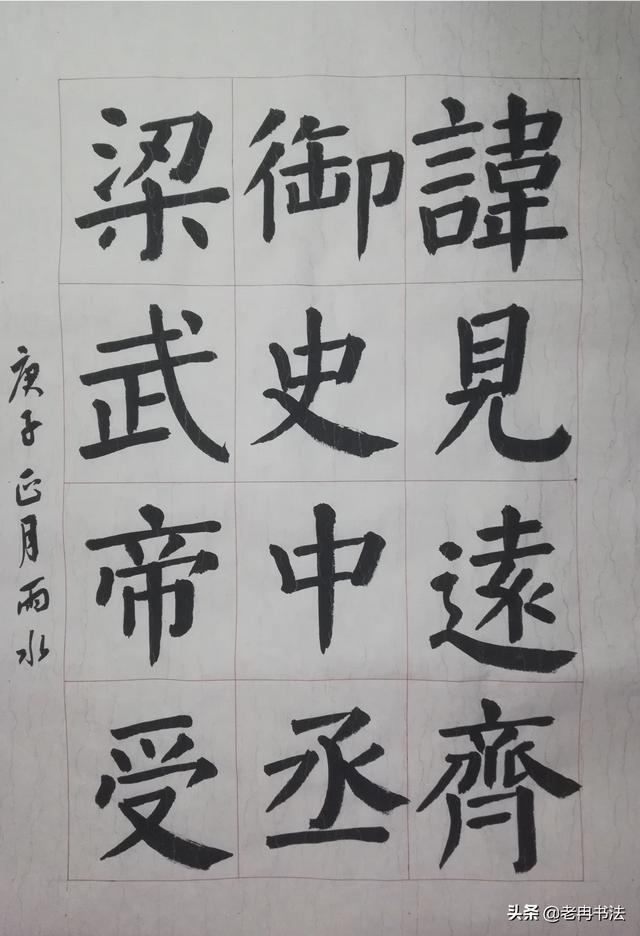 諱見遠齊
御史中丞
梁武帝受
庚子正月雨水
头条 @老冉书法